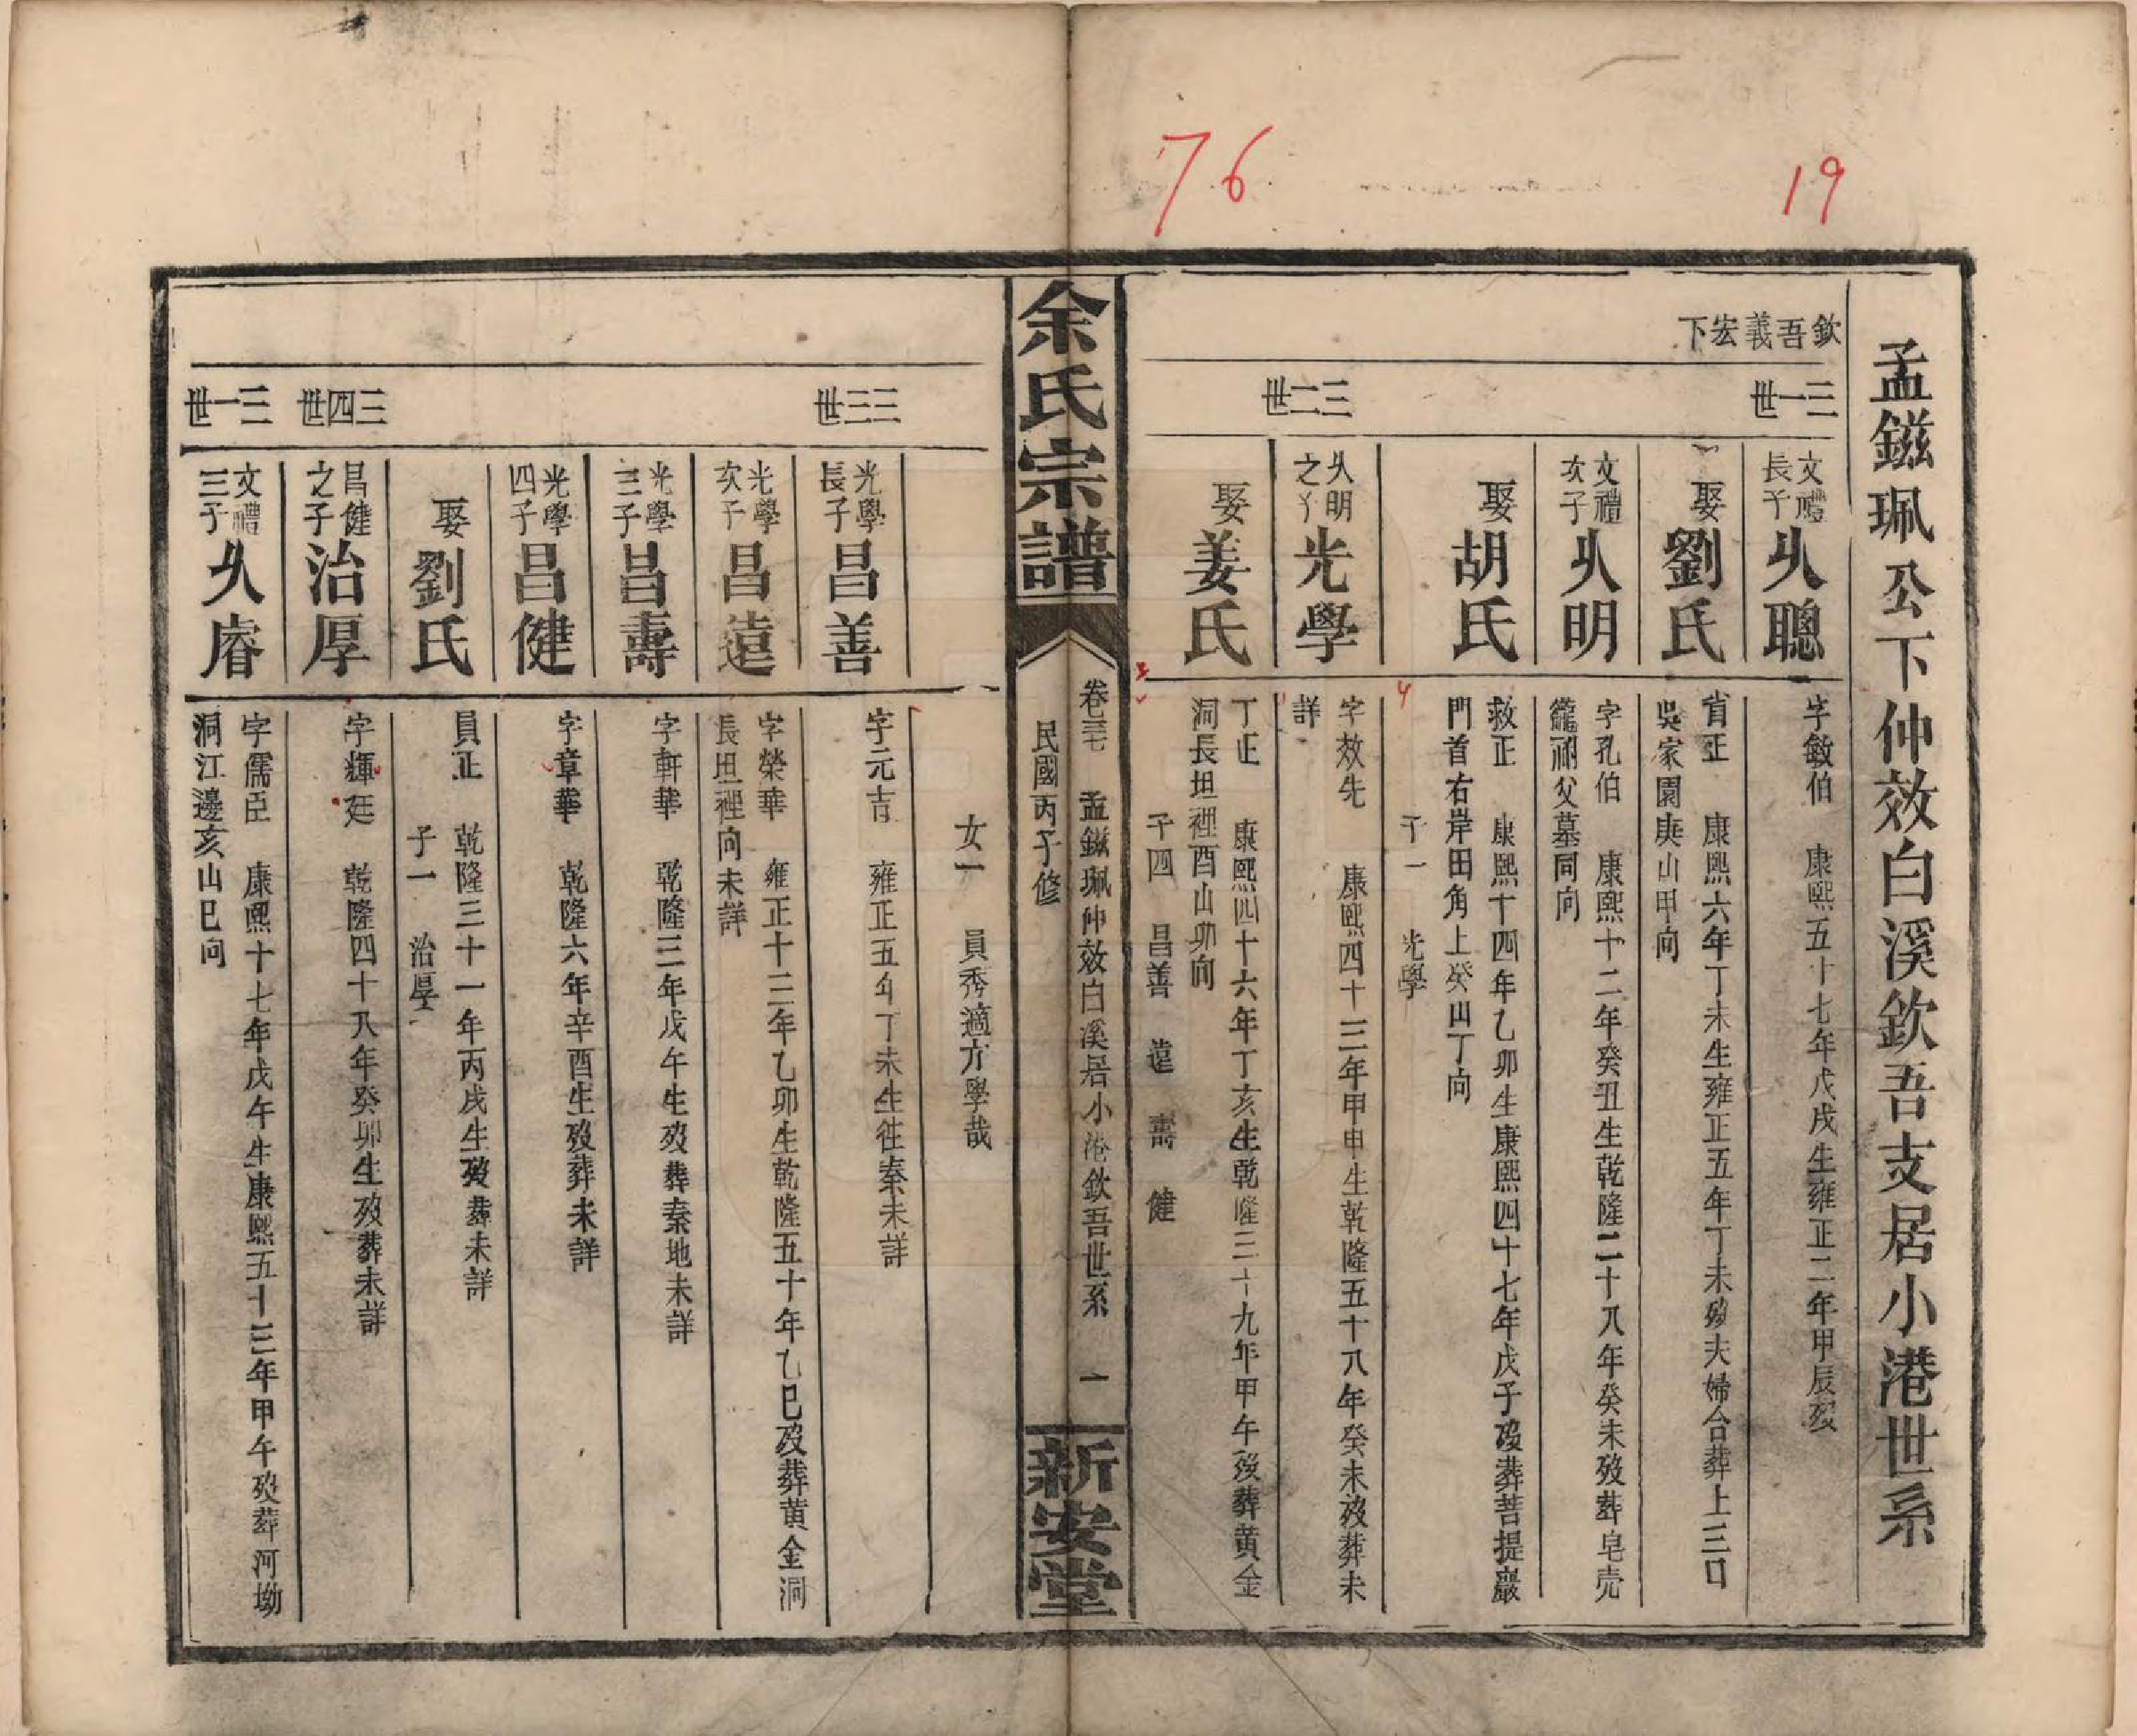 76
19
孟鎡珮公下仲效白溪欽吾支居小港世系
欽吾義宏下
三一世
文禮長子 乆聰
字敏伯 康熙五十七年戊戌生雍正二年甲辰歿
娶 劉氏
省正 康熙六年丁未生雍正五年丁未歿夫婦合葬上三口
吳家園庚山甲向
文禮次子 乆明
字孔伯 康熙十二年癸丑生乾隆二十八年癸未歿葬皂壳
籠祔父墓同向
娶 胡氏
救正 康熙十四年乙卯生康熙四十七年戊子歿葬菩提巖
門首右岸田角上癸山丁向
子一 光學
三二世
乆明之子 光學
字效先 康熙四十三年甲申生乾隆五十八年癸未歿葬未
詳
娶 姜氏
丁正 康熙四十六年丁亥生乾隆三十九年甲午歿葬黄金
洞長坦裡酉山卯向
子四 昌善 遠 壽 健
余氏宗譜
卷三七 孟鎡珮仲效白溪居小港欽吾世系 一
民國丙子修
新安堂
女一 員秀適方學哉
三三世
光學長子 昌善
字元吉 雍正五年丁未生往秦未詳
光學次子 昌遠
字榮華 雍正十三年乙卯生乾隆五十年乙巳歿葬黄金洞
長坦裡向未詳
光學三子 昌壽
字軒華 乾隆三年戊午生歿葬秦地未詳
光學四子 昌健
字章華 乾隆六年辛酉生歿葬未詳
娶 劉氏
員正 乾隆三十一年丙戌生歿葬未詳
子一 治厚
三四世
昌健之子 治厚
字輝廷 乾隆四十八年癸卯生歿葬未詳
三一世
文禮三子 乆睿
字儒臣 康熙十七年戊午生康熙五十三年甲午歿葬河坳
洞江邊亥山巳向